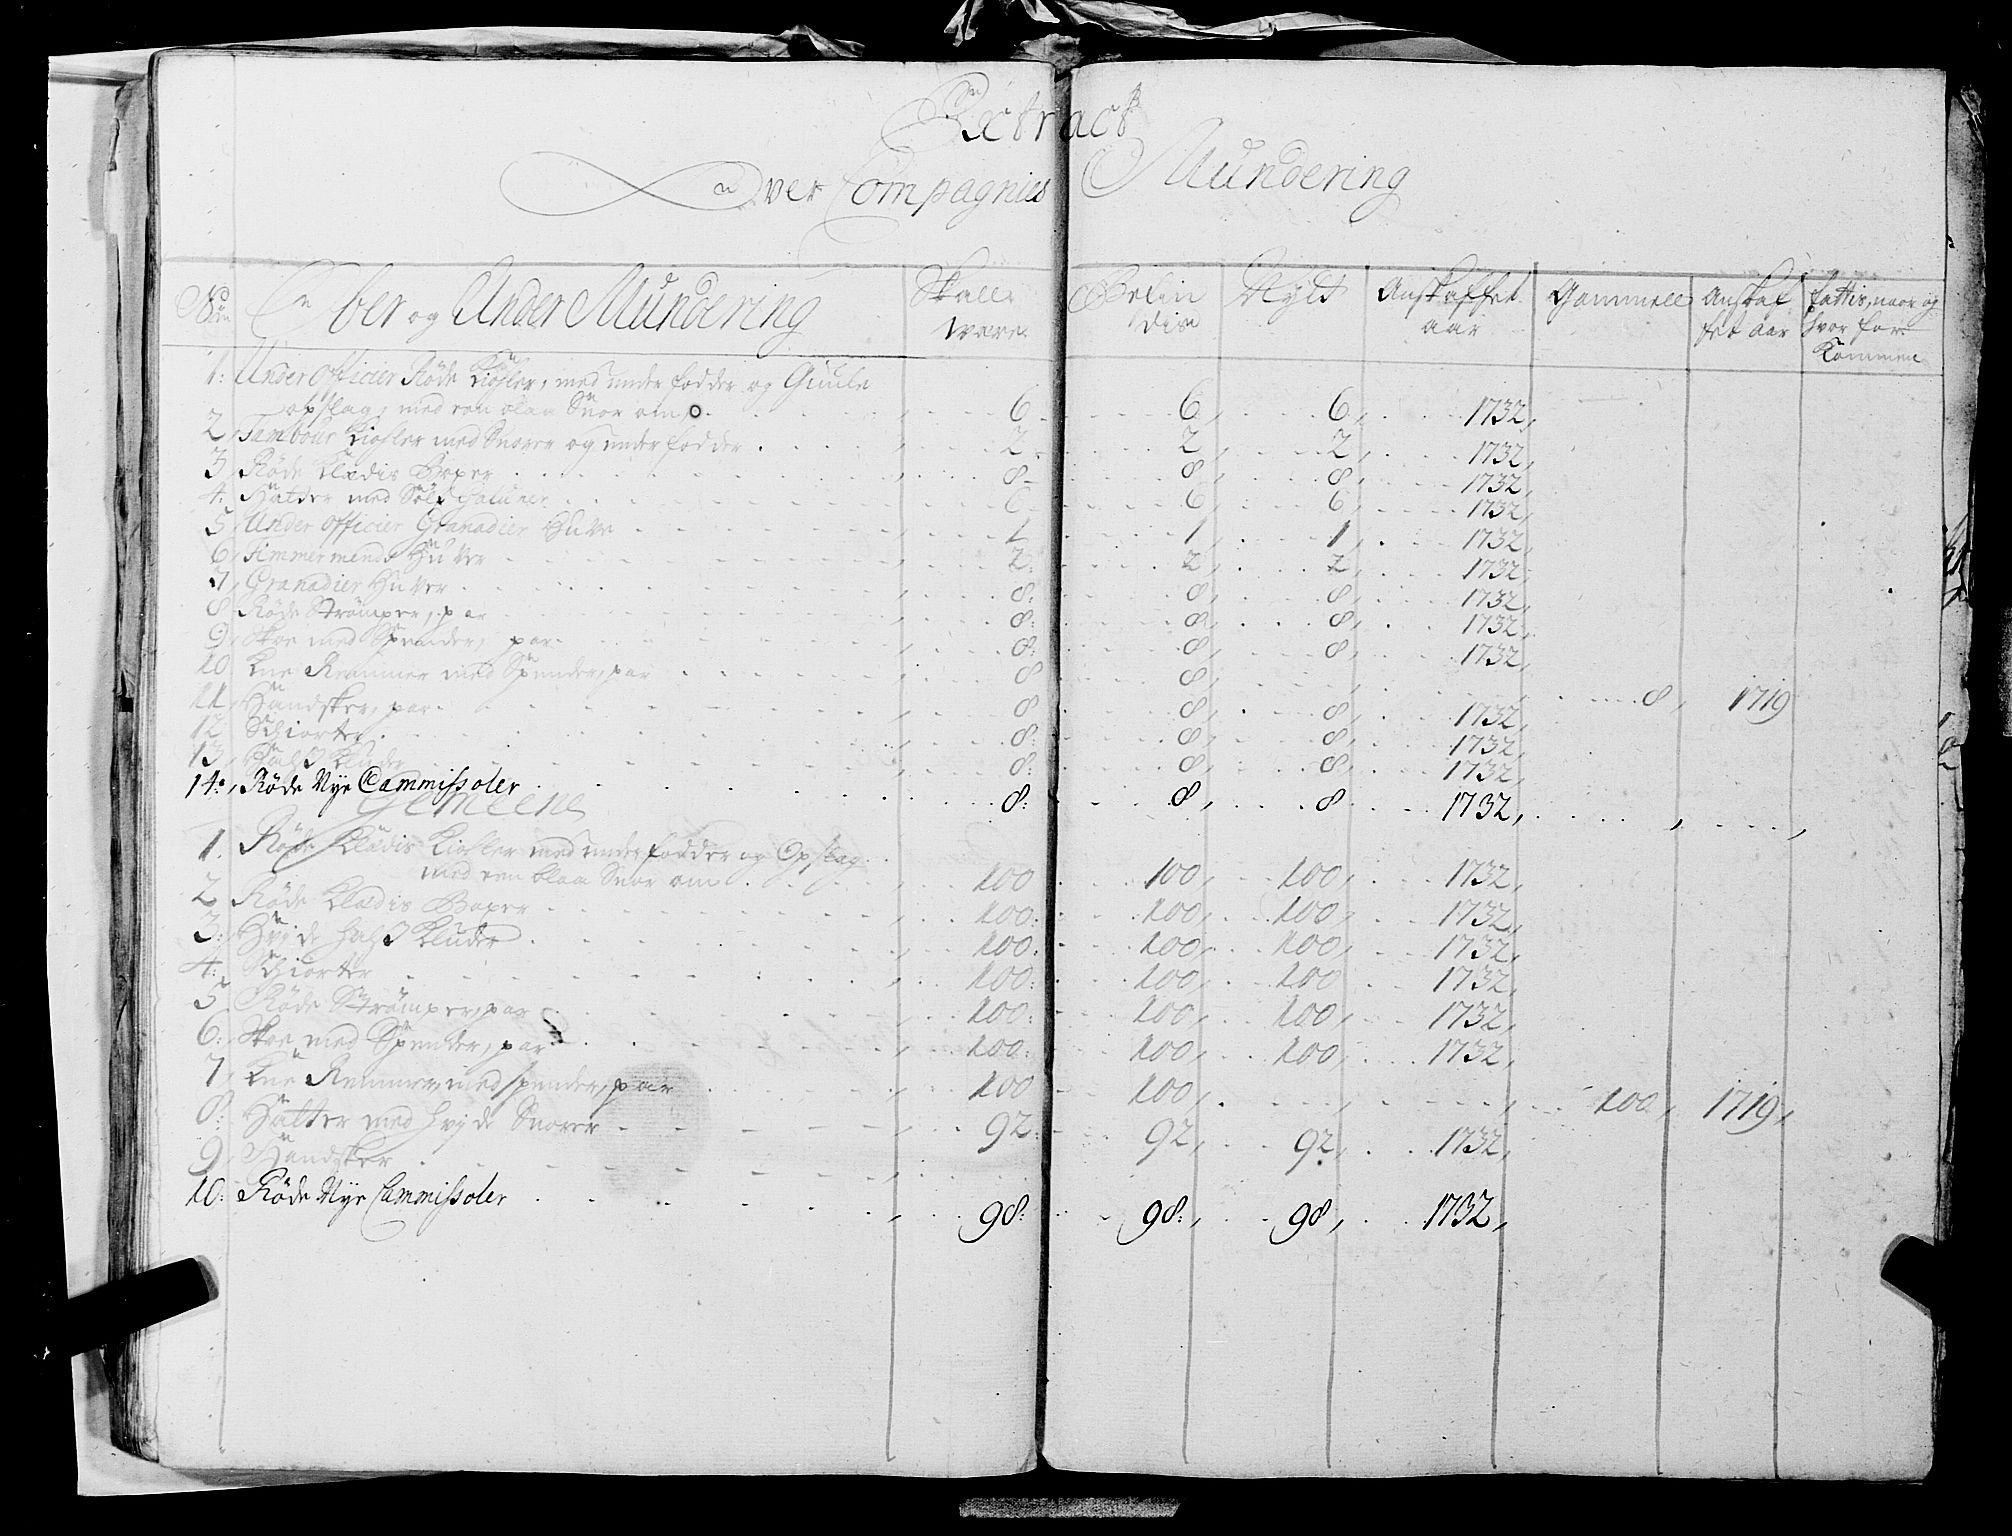 Extract
Over Compagnies Mundering
No Ober og Under Mundering Skall være Befindis Nyit Anskaffet aar Gammell Anskaffet aar fattis, naar og hvor forkommen
1: Under Officier Røde Kiohler, med under fodder og Guule
opslag, med een blaa Snor om 6 6, 6, 1732,
2, Tambour Kiohler med Snorer og under fodder 2 2, 2, 1732,
3, Røde Klædis Boxer 8 8, 8, 1732,
4: Hatter med Sølf Galuner 6 6, 6, 1732,
5, Under Officier Granadier Huve 1 1, 1, 1732,
6, Timmermands Huver 2: 2, 2, 1732,
7, Granadier Huver 8: 8, 8, 1732,
8 Røde Strømper, par 8: 8, 8, 1732,
9, Skoe med Spender, par 8: 8, 8, 1732,
10 Knee Remmer med Spender, par 8 8, 8, 1719
11, Handsker, par 8 8, 8, 1732,
12 Schiorter 8: 8, 8, 1732,
13, Halß Kluder 8: 8, 8, 1732,
14:, Røde Nye Cammissoler 8: 8, 8 1732,
Gemeene
1. Røde Klædis Kiohler med under fodder og Opslag
med een blaa Snor om 100 100, 100, 1732,
2 Røde Klædis Boxer 100: 100, 100, 1732,
3: Hvide Halß Kluder 100: 100, 100, 1732,
4: Schiorter 100: 100, 100 1732,
5 Røde Strømper, par 100: 100, 100, 1732,
6: Skoe med Spender, par 100: 100, 100, 1732,
7, Knee Remmer med Spender, par 100 100, 100, 1719,
8: Hatter med hvide Snorer 92: 92, 92, 1732,
9, Handsker
10: Røde Nye Cammissoler 98: 98:, 98, 1732,